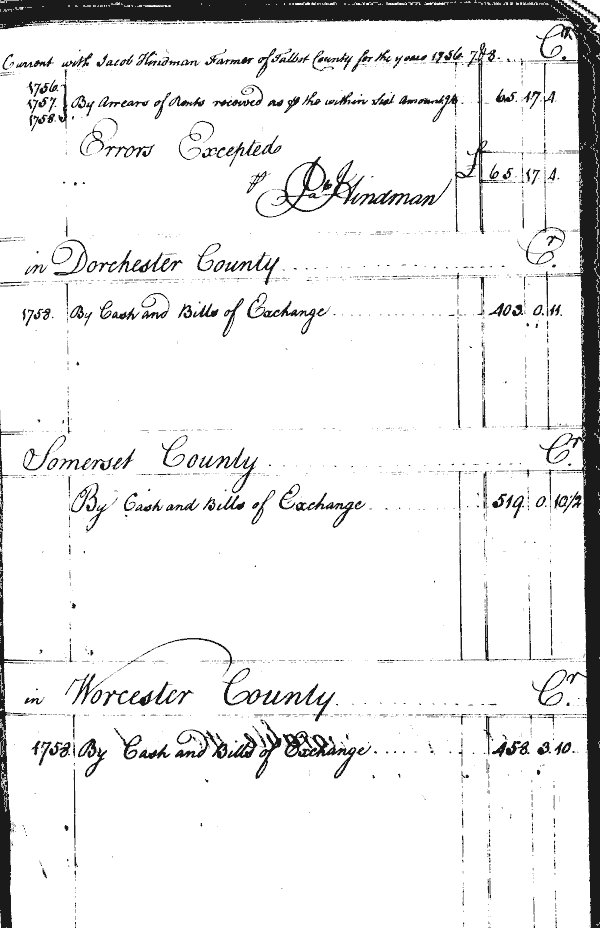 Current with Jacob Hindman Farmer of Talbot County for the years 1756. 7 & 8 .... Cr.
1756.
1757. By Arrears of Rents received as ⅌ the within List Amount'g to 65. 17. 4
1758.
Errors Excepted
£ 65. 17. 4.
⅌ Jacb Hindman
in Dorchester County ............ Cr.
1758. By Cash and Bills of Exchange ............ 403. 0. 11.
Somerset County ............ Cr.
By Cash and Bills of Exchange ............ 519. 0. 10/2
in Worcester County ............ Cr.
1758. By Cash and Bills of Exchange ............ 458. 3. 10.